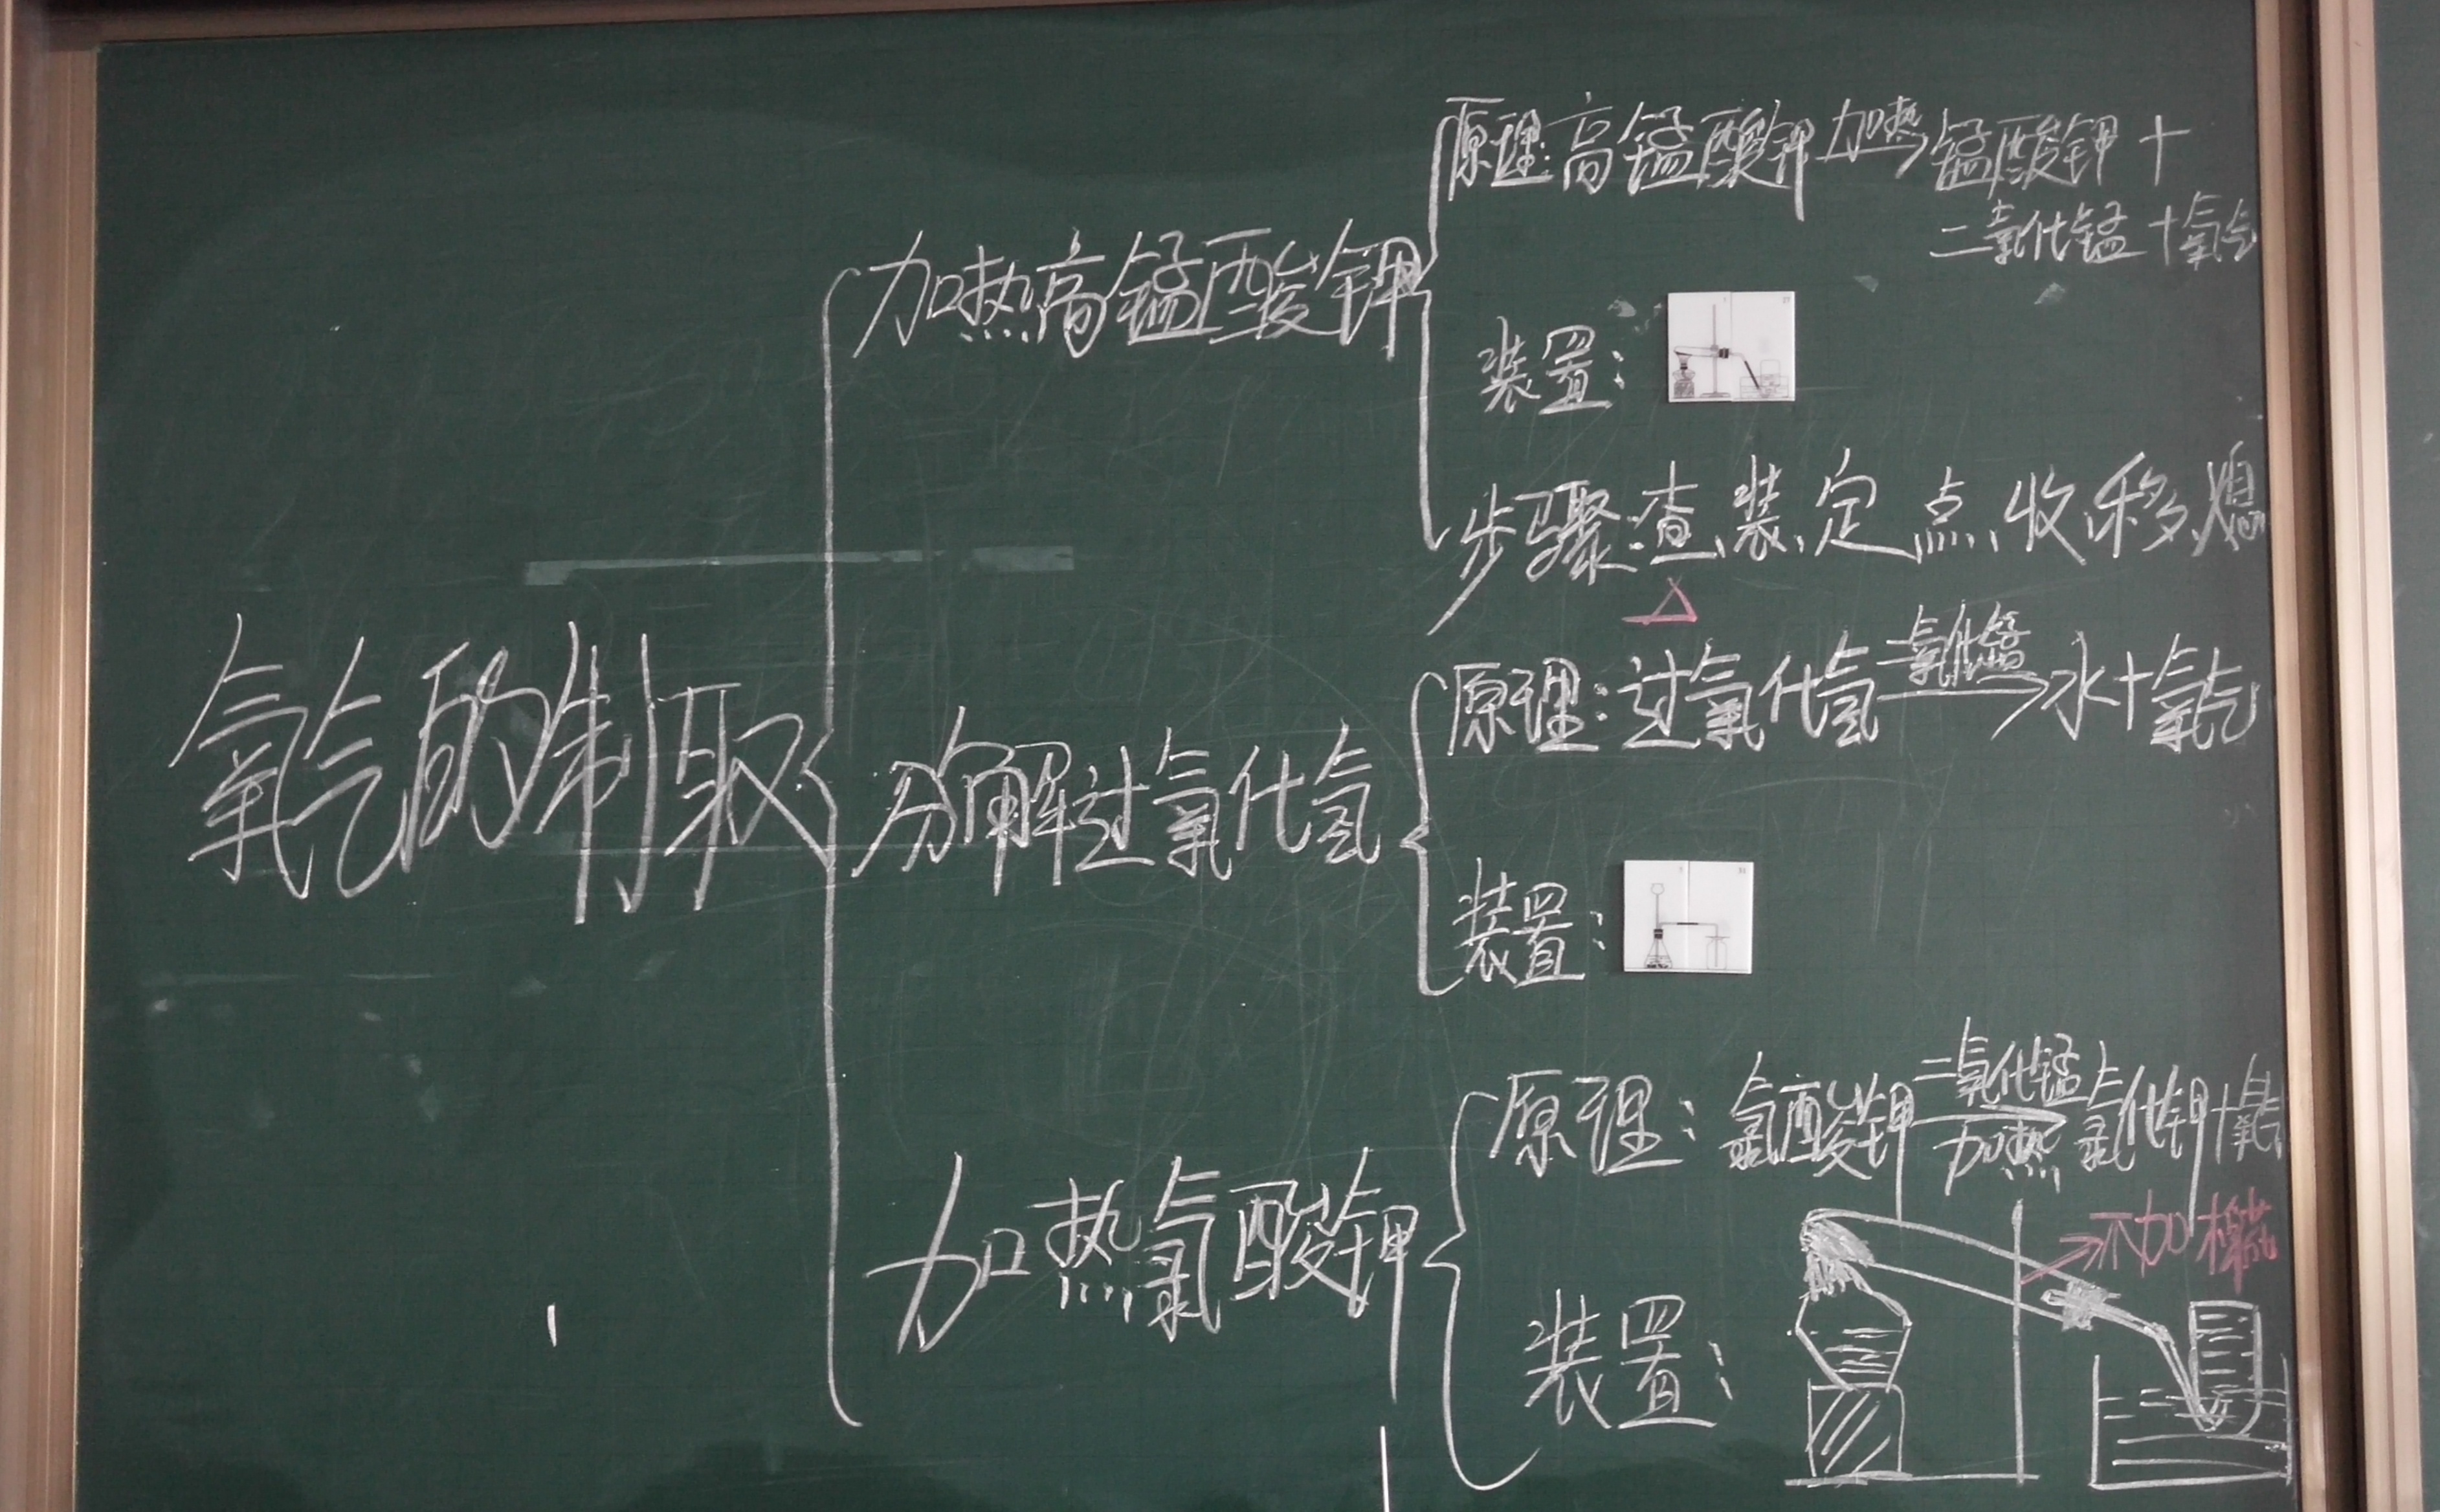 氧气的制取
加热高锰酸钾
原理:高锰酸钾 加热→ 锰酸钾+
二氧化锰+氧气
装置:
步骤:查、装、定、点、收、移、熄
△
分解过氧化氢
原理:过氧化氢 二氧化锰→ 水+氧气
装置:
加热氯酸钾
原理:氯酸钾 二氧化锰→ 加热 氯化钾+氧气
→不加棉花
装置: